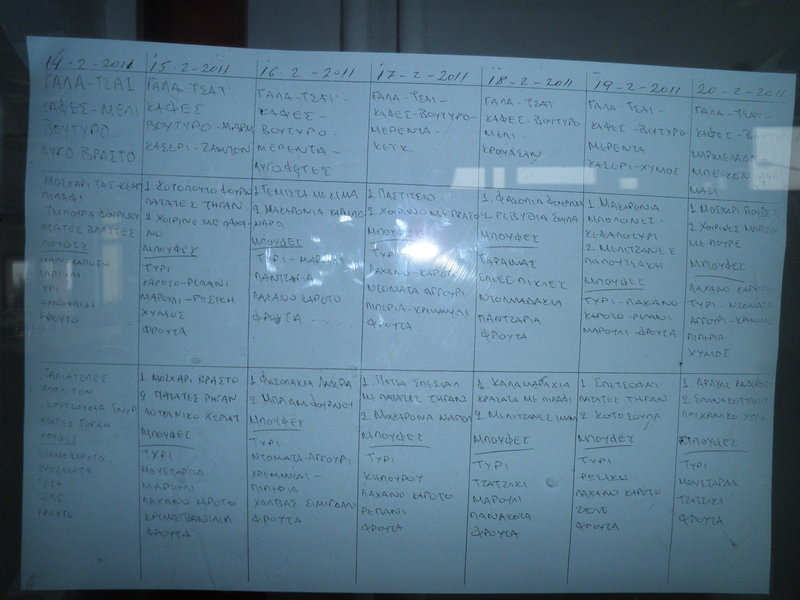 14-2-2011
ΓΑΛΑ-ΤΣΑΙ
ΚΑΦΕΣ-ΜΕΛΙ
ΒΟΥΤΥΡΟ
ΑΥΓΟ ΒΡΑΣΤΟ
ΜΟΣΧΑΡΙ
ΠΙΛΑΦΙ
ΤΣΙΠΟΥΡΑ ΦΟΥΡΝΟΥ
ΠΑΤΑΤΕΣ ΒΡΑΣΤΕΣ
ΜΠΟΥΦΕΣ
ΜΑΡΟΥΛΙ
ΤΥΡΙ
ΦΡΟΥΤΟ
ΤΑΛΙΑΤΕΛΕΣ
ΝΑΠΟΛΙΤΑΝ
ΠΑΤΑΤΕΣ ΤΗΓΑΝ
ΜΠΟΥΦΕΣ
ΛΑΧΑΝΟ ΚΑΡΟΤΟ
ΦΕΤΑ
ΖΕΛΕ
ΦΡΟΥΤΟ
15-2-2011
ΓΑΛΑ-ΤΣΑΙ
ΚΑΦΕΣ
ΒΟΥΤΥΡΟ-ΜΑΡΜ
ΚΑΣΕΡΙ-ΖΑΜΠΟΝ
1 ΚΟΤΟΠΟΥΛΟ ΦΟΥΡΝ
ΠΑΤΑΤΕΣ ΤΗΓΑΝ
2 ΧΟΙΡΙΝΟ ΜΕ ΛΑΧΑ-
ΝΟ
ΜΠΟΥΦΕΣ
ΤΥΡΙ
ΚΑΡΟΤΟ-ΡΕΠΑΝΙ
ΜΑΡΟΥΛΙ-ΡΩΣΙΚΗ
ΧΥΜΟΣ
ΦΡΟΥΤΑ
1. ΜΟΣΧΑΡΙ ΒΡΑΣΤΟ
2 ΠΑΤΑΤΕΣ ΡΗΓΑΝ
ΛΟΥΚΑΝΙΚΟ ΧΩΡΙΑΤ
ΜΠΟΥΦΕΣ
ΤΥΡΙ
ΜΟΥΣΤΑΡΔΑ
ΜΑΡΟΥΛΙ
ΛΑΧΑΝΟ ΚΑΡΟΤΟ
ΚΡΕΜΑ ΒΑΝΙΛΙΑ
ΦΡΟΥΤΑ
16-2-2011
ΓΑΛΑ-ΤΣΑΙ-
ΚΑΦΕΣ-
ΒΟΥΤΥΡΟ-
ΜΕΡΕΝΤΑ-
ΑΥΓΟΦΕΤΕΣ
1 ΓΕΜΙΣΤΑ ΜΕ ΚΙΜΑ
2 ΜΑΚΑΡΟΝΙΑ ΚΑΡΜΠΟ-
ΝΑΡΑ
ΜΠΟΥΦΕΣ
ΤΥΡΙ-ΜΑΡΟΥΛΙ
ΠΑΝΤΖΑΡΙΑ
ΛΑΧΑΝΟ ΚΑΡΟΤΟ
ΦΡΟΥΤΑ
1 ΦΑΣΟΛΑΚΙΑ ΛΑΔΕΡΑ
2 ΜΠΡΙΑΜ ΦΟΥΡΝΟΥ
ΜΠΟΥΦΕΣ
ΤΥΡΙ
ΝΤΟΜΑΤΑ-ΑΓΓΟΥΡΙ
ΚΡΕΜΜΥΔΙ-
ΠΙΠΕΡΙΑ
ΧΑΛΒΑΣ ΣΙΜΙΓΔΑΛΙ
ΦΡΟΥΤΑ
17-2-2011
ΓΑΛΑ-ΤΣΑΙ-
ΚΑΦΕΣ-ΒΟΥΤΥΡΟ-
ΜΕΡΕΝΤΑ-
ΚΕΙΚ
1. ΠΑΣΤΙΤΣΙΟ
2. ΧΟΙΡΙΝΟ ΜΕ ΠΡΑΣΟ
ΜΠΟΥΦΕΣ
ΤΥΡΙ
ΛΑΧΑΝΟ ΚΑΡΟΤΟ
ΝΤΟΜΑΤΑ ΑΓΓΟΥΡΙ
ΠΙΠΕΡΙΑ-ΚΡΕΜΜΥΔΙ
ΦΡΟΥΤΑ
1 ΠΙΤΣΑ ΣΠΕΣΙΑΛ
ΜΕ ΠΑΤΑΤΕΣ ΤΗΓΑΝ
2. ΜΑΚΑΡΟΝΙΑ ΝΑΠΟΛ
ΜΠΟΥΦΕΣ
ΤΥΡΙ
ΚΗΠΟΥΡΟΥ
ΛΑΧΑΝΟ ΚΑΡΟΤΟ
ΡΕΠΑΝΙ
ΦΡΟΥΤΑ
18-2-2011
ΓΑΛΑ-ΤΣΑΙ
ΚΑΦΕΣ-ΒΟΥΤΥΡΟ
ΜΕΛΙ-
ΚΡΟΥΑΣΑΝ
1. ΦΑΣΟΛΙΑ
2. ΡΕΒΥΘΙΑ ΣΟΥΠΑ
ΜΠΟΥΦΕΣ
ΤΑΡΑΜΑΣ
ΕΛΙΕΣ-ΠΙΚΛΕΣ
ΝΤΟΛΜΑΔΑΚΙΑ
ΠΑΝΤΖΑΡΙΑ
ΦΡΟΥΤΑ
1. ΚΑΛΑΜΑΡΑΚΙΑ
ΚΡΑΣΑΤΑ ΜΕ ΠΙΛΑΦΙ
2. ΜΕΛΙΤΖΑΝΕΣ ΙΜΑΜ
ΜΠΟΥΦΕΣ
ΤΥΡΙ
ΤΖΑΤΖΙΚΙ
ΜΑΡΟΥΛΙ
ΠΑΝΑΚΟΤΑ
ΦΡΟΥΤΑ
19-2-2011
ΓΑΛΑ-ΤΣΑΙ-
ΚΑΦΕΣ-ΒΟΥΤΥΡΟ
ΜΕΡΕΝΤΑ
ΚΑΣΕΡΙ-ΧΥΜΟΣ
1. ΜΑΚΑΡΟΝΙΑ
ΜΠΟΛΟΝΕΖ-
ΚΕΦΑΛΟΤΥΡΙ
2. ΜΕΛΙΤΖΑΝΕΣ
ΠΑΠΟΥΤΣΑΚΙΑ
ΜΠΟΥΦΕΣ
ΤΥΡΙ-ΛΑΧΑΝΟ
ΚΑΡΟΤΟ-ΡΕΠΑΝΙ
ΜΑΡΟΥΛΙ-ΦΡΟΥΤΑ
1. ΣΠΕΤΣΟΦΑΙ
ΠΑΤΑΤΕΣ ΤΗΓΑΝ
2. ΚΟΤΟΣΟΥΠΑ
ΜΠΟΥΦΕΣ
ΤΥΡΙ
ΡΩΣΙΚΗ
ΛΑΧΑΝΟ ΚΑΡΟΤΟ
ΖΕΛΕ
ΦΡΟΥΤΑ
20-2-2011
ΓΑΛΑ-ΤΣΑΙ-
ΚΑΦΕΣ-ΒΟΥΤ
ΜΑΡΜΕΛΑΔ
ΜΠΕΙΚΟΝ-ΑΥΓ
1. ΜΟΣΧΑΡΙ
2. ΧΟΙΡΙΝΕΣ ΜΠΡΙΖΟΛ
ΜΕ ΠΟΥΡΕ
ΜΠΟΥΦΕΣ
ΛΑΧΑΝΟ ΚΑΡΟΤΟ
ΤΥΡΙ-ΝΤΟΜΑΤΑ
ΑΓΓΟΥΡΙ-ΚΡΕΜΜΥΔ
ΠΙΠΕΡΙΑ
ΧΥΜΟΣ
1. ΑΡΑΚΑΣ ΛΑΔΕΡΟΣ
2. ΣΠΑΝΑΚΟΤΥΡΟΠ
ΛΟΥΚΑΝΙΚΟ
ΜΠΟΥΦΕΣ
ΤΥΡΙ
ΜΟΥΣΤΑΡΔΑ
ΤΖΑΤΖΙΚΙ
ΦΡΟΥΤΑ